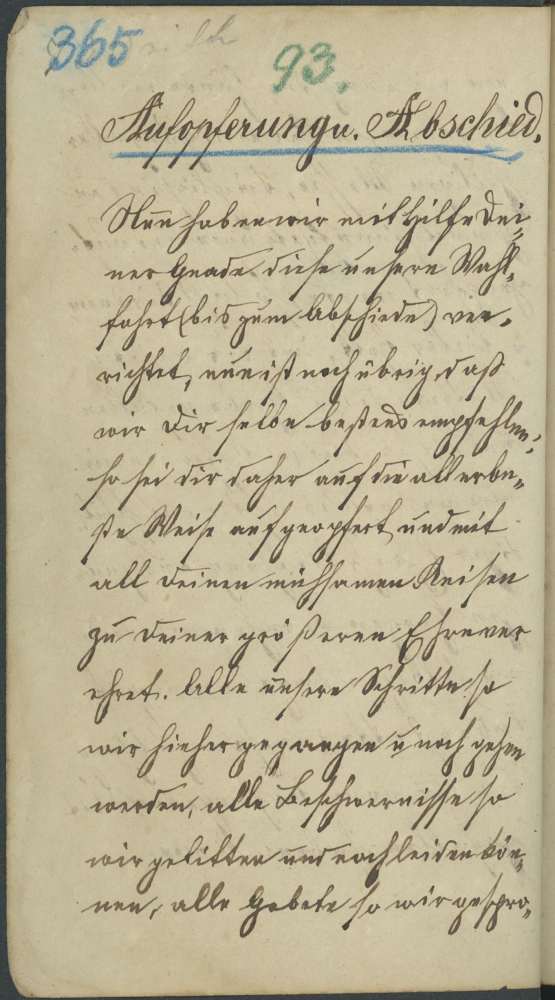 365
93.
Aufopferung u. Abschied.
Nun haben wir mit Hilfe Dei-
ner Gnade diese unsere Wahl-
fahrt (bis zum Abschiede) ver-
richtet, nun ist noch übrig, daß
wir Dir selbe bestens empfehlen,
so sei dir daher auf die allerbe-
ste Weise aufgeopfert, und mit
all deinen mühsamen Reisen
zu deiner größeren Ehre ver
ehret. Alle unsere Schritte so
wir hieher gegangen u noch gehen
werden, alle Beschwernisse so
wir gelitten und noch leiden kön-
nen, alle Gebete so wir gespro-